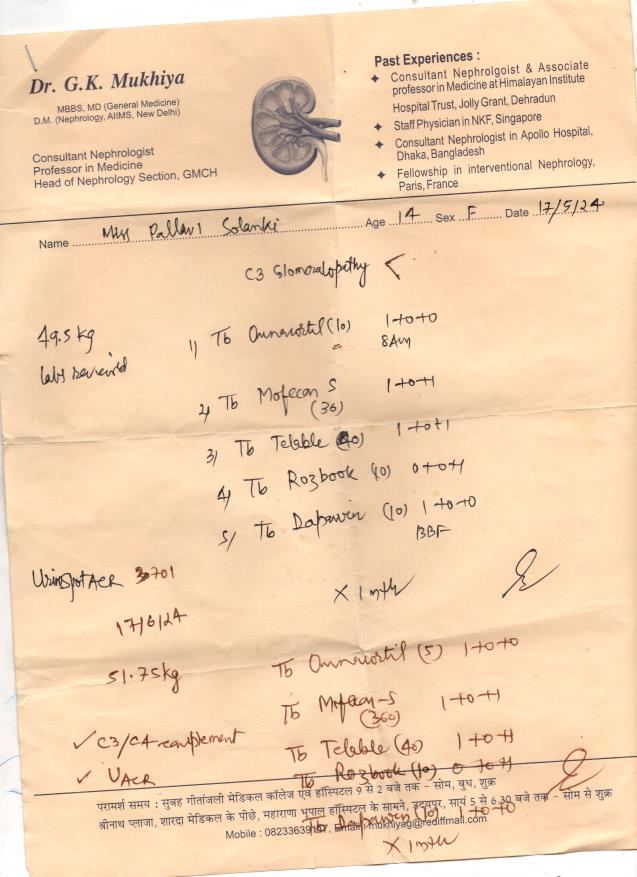 Dr. G.K. Mukhiya
MBBS, MD (General Medicine)
D.M. (Nephrology, AIIMS, New Delhi)
Consultant Nephrologist
Professor in Medicine
Head of Nephrology Section, GMCH
Past Experiences :
Consultant Nephrolgoist & Associate
professor in Medicine at Himalayan Institute
Hospital Trust, Jolly Grant, Dehradun
Staff Physician in NKF, Singapore
Consultant Nephrologist in Apollo Hospital,
Dhaka, Bangladesh
Fellowship in interventional Nephrology,
Paris, France
Name Miss Pallavi Solanki Age 14 Sex F Date 17/5/24
C3 Glomerulopathy
49.5 kg
labs reviewed
1) Tb Omnacortil (10) 1+0+0
8AM
2) Tb Mofecon S 1+0+1
(36)
3) Tb Telable (40) 1+0+1
4) Tb Rozbook (10) 0+0+1
5) Tb Daparyn (10) 1+0+0
BBF
Urine spot ACR 3701
x 1 mth
17/6/24
51.75kg
Tb Omnacortil (5) 1+0+0
Tb Mofecon-S 1+0+1
(360)
✓ C3/C4-complement
Tb Telable (40) 1+0+1
✓ UACR
Tb Rozbook (10) 0+0+1
परामर्श समय : सुबह गीतांजली मेडिकल कॉलेज एवं हॉस्पिटल 9 से 2 बजे तक - सोम, बुध, शुक्र
श्रीनाथ प्लाजा, शारदा मेडिकल के पीछे, महाराणा भूपाल हॉस्पिटल के सामने, उदयपुर, सायं 5 से 6.30 बजे तक - सोम से शुक्र
Tb Daparyn (10) 1+0+0
Mobile : Email : mukhiyag@rediffmail.com
x 1 mth